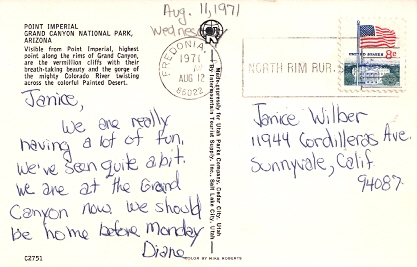 Aug. 11, 1971
Wednesday
POINT IMPERIAL
GRAND CANYON NATIONAL PARK,
ARIZONA
Visible from Point Imperial, highest
point along the rims of Grand Canyon,
are the vermillion cliffs with their
breath-taking beauty and the gorge of
the mighty Colorado River twisting
across the colorful Painted Desert.
Janice,
We are really
having a lot of fun.
We've seen quite a bit.
We are at the Grand
Canyon now. We should
be home before Monday
Diane
C2751
COLOR BY MIKE ROBERTS
Made expressly for Utah Parks Company, Cedar City, Utah
By Intermountain Tourist Supply, Inc., Salt Lake City, Utah
FREDONIA,
1971
AUG 12
86022
NORTH RIM RUR. S
UNITED STATES
8c
Janice Wilber
11944 Cordilleras Ave.
Sunnyvale, Calif
94087